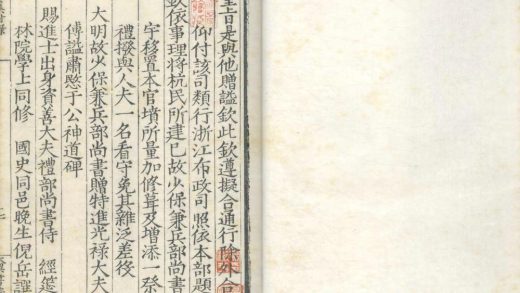 聖旨是與他贈謚欽此欽遵擬合通行除外合
仰付該司類行浙江布政司照依本部題
欽依事理將杭民所建已故少保兼兵部尚書
宇移置本官墳所量加修葺及増添一祭
禮撥與人夫一名看守免其雜泛差役
大明故少保兼兵部尚書贈特進光祿大夫
傅謚肅愍于公神道碑
賜進士出身資善大夫禮部尚書侍 經筵
林院學士同修 國史同邑晚生倪岳譔